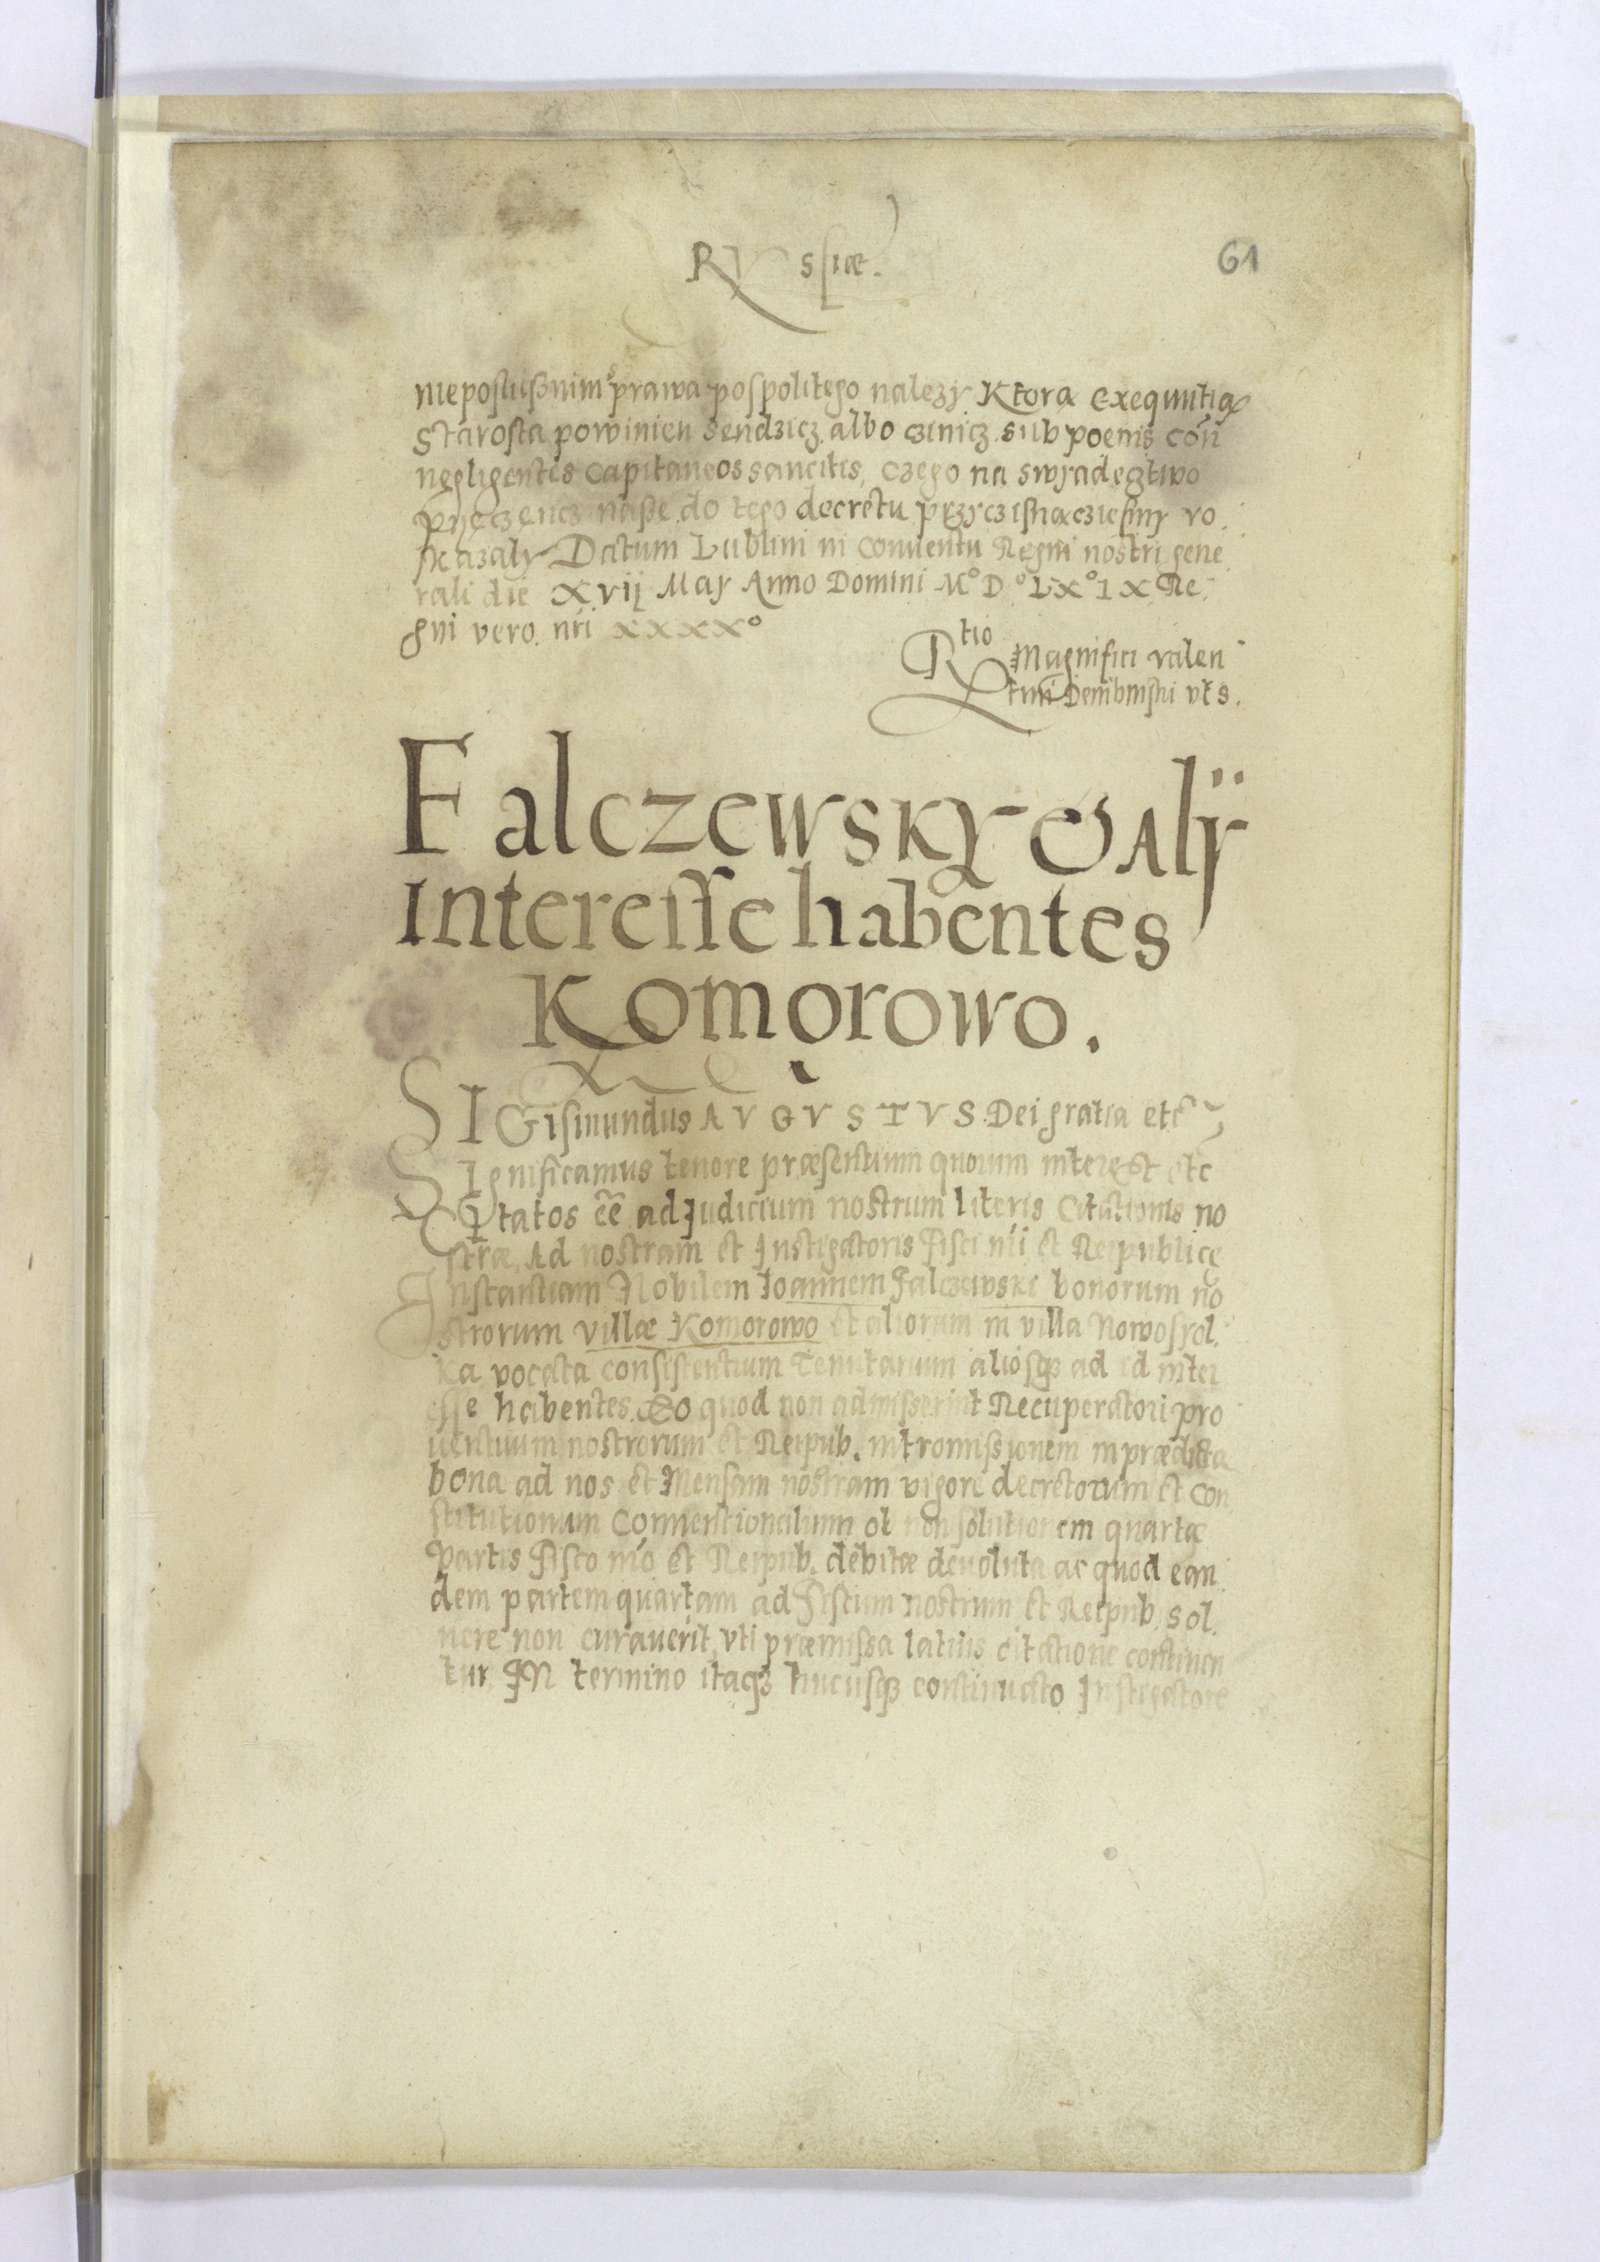 RVssiæ.
61
nieposlusznim prawa pospolitego nalezy Ktorą exequutią
Starosta powinien sendzicz albo czinicz sub poenis con
negligentes Capitaneos sancitis, czego na swyadecztwo
pyęczencz nasze do tego decretu przyczisnączieśmy ro
skazaly Datum Lublini in Conuentu Regni nostri gene
rali die xvij May Anno Domini M° D° Lx° Ix Re
gni vero nri xxxx°
Rtio Magnifici valen
tini Dembinski vts.
Falczewsky & Alÿ
Interesse habentes
Komorowo.
SIGismundus AVGVSTVS Dei gratia etc
SIgnificamus tenore præsentium quorum interest etc
CItatos eē ad Judicium nostrum literis Citationis no
stræ, Ad nostram et Instigatoris Fisci nri et Reipublicę
Instantiam Nobilem Ioannem Falczewski bonorum no
strorum villæ Komorowo et aliorum in villa Nowosyol
ka vocata consistentium Tenutarium aliosq3 ad id inter
esse habentes. Eo quod non admisserint Recuperatori pro
uentuum nostrorum et Reipub. intromissionem in prædicta
bona ad nos et Mensam nostram vigore decretorum et con
stitutionum Conuentionalium ob non solutionem quartæ
Partis Fisco nro et Reipub. debitæ deuoluta ac quod ean
dem partem quartam ad Fiscum nostrum et Reipub. sol
uere non curauerit, vti præmissa latius citatione continen
tur IN termino itaq3 hucusq3 continuato Instigatore